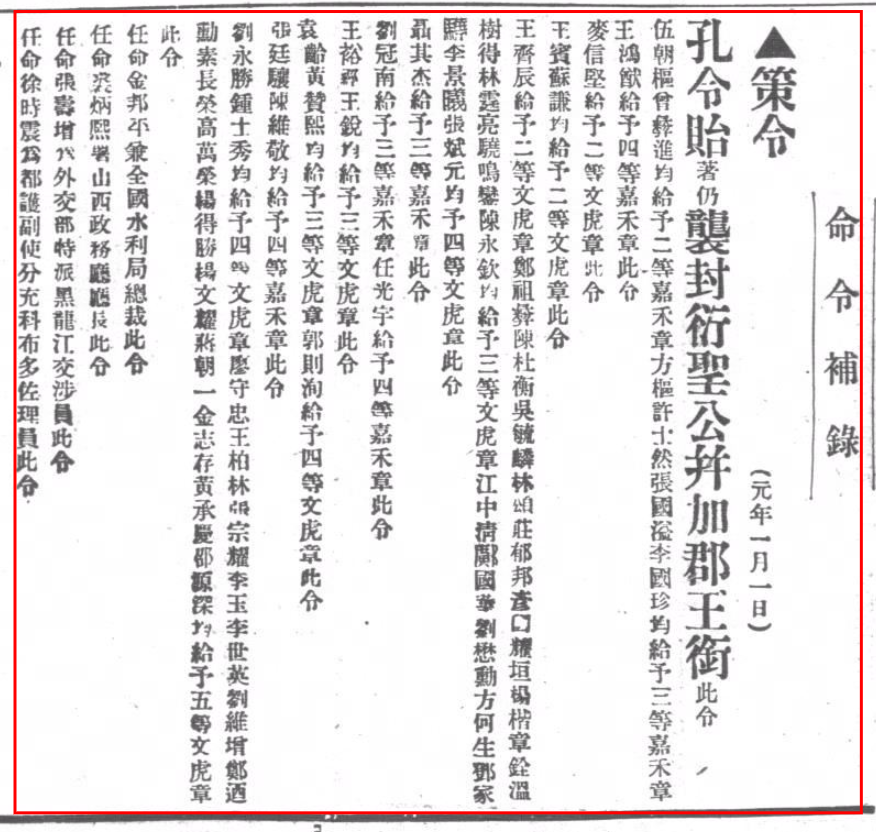 命令補錄
▲策令
(元年一月一日)
孔令貽著仍襲封衍聖公幷加郡王銜此令
伍朝樞曾彝進均給予二等嘉禾章方樞許士然張國溢李國珍均給予三等嘉禾章
王鴻猷給予四等嘉禾章此令
麥信堅給予二等文虎章此令
王賓蘇謙均給予二等文虎章此令
王齊辰給予二等文虎章鄭祖彝陳杜衡吳毓麟林頌莊郁邦彥口耀垣楊楷章銓溫
樹得林霆亮驍鳴鑾陳永欽均給予三等文虎章江中淸鄺國華劉懋勳方何生鄧家
驊李景曦張斌元均予四等文虎章此令
聶其杰給予三等嘉禾章此令
劉冠南給予三等嘉禾章任光宇給予四等嘉禾章此令
王裕 王銳均給予三等文虎章此令
袁齡黃贊熙均給予三等文虎章郭則洵給予四等文虎章此令
張廷驤陳維敬均給予四等嘉禾章此令
劉永勝鍾士秀均給予四等文虎章廖守忠王柏林張宗耀李玉李世英劉維增鄭迺
勳秦長榮高萬榮楊得勝楊文耀蔣朝一金志存黃承慶邵源深均給予五等文虎章
此令
任命金邦平兼全國水利局總裁此令
任命裘炳熙署山西政務廳廳長此令
任命張壽增代外交部特派黑龍江交涉員此令
任命徐時震爲都護副使分充科布多佐理員此令